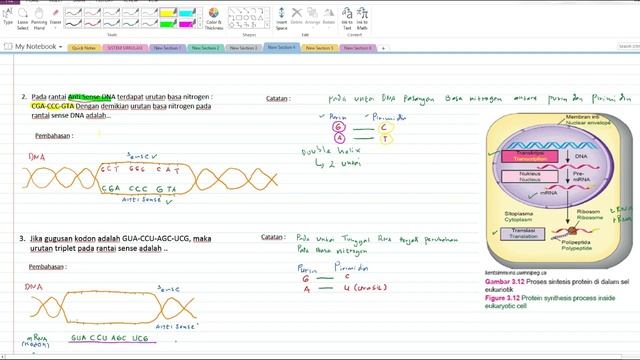 Type
Lasso Select
Panning Hand
Eraser
Color & Thickness
Insert Shapes
Ink to Text
Ink to Math
My Notebook
Quick Notes
SISTEM SIMULASI
New Section 1
New Section 2
New Section 3
New Section 4
New Section 5
New Section 6
2. Pada rantai Anti Sense DNA terdapat urutan basa nitrogen :
CGA-CCC-GTA Dengan demikian urutan basa nitrogen pada
rantai sense DNA adalah...
Pembahasan :
DNA
Sense
GCT GGG CAT
CGA CCC GTA
Anti Sense
Catatan :
pada untai DNA Pasangan Basa nitrogen antara purin dan Pirimidin
Purin Pirimidin
G C
A T
Double helix
↳ 2 untai
3. Jika gugusan kodon adalah GUA-CCU-AGC-UCG, maka
urutan triplet pada rantai sense adalah ..
Pembahasan :
DNA
Sense
Anti Sense
mRNA
(kodon)
GUA CCU AGC UCG
Catatan :
Pada untai Tunggal RNA terjadi perubahan
Pada Basa nitrogen
Purin Pirimidin
G C
A U (urasil)
Membran inti
Nuclear envelope
Transkripsi
Transcription
DNA
Nukleus
Nucleus
Pre-
mRNA
mRNA
Sitoplasma
Cytoplasm
Ribosom
Ribosome
tRNA
rRNA
Translasi
Translation
Polipeptida
Polypeptide
Gambar 3.12 Proses sintesis protein di dalam sel
eukariotik
Figure 3.12 Protein synthesis process inside
eukaryotic cell